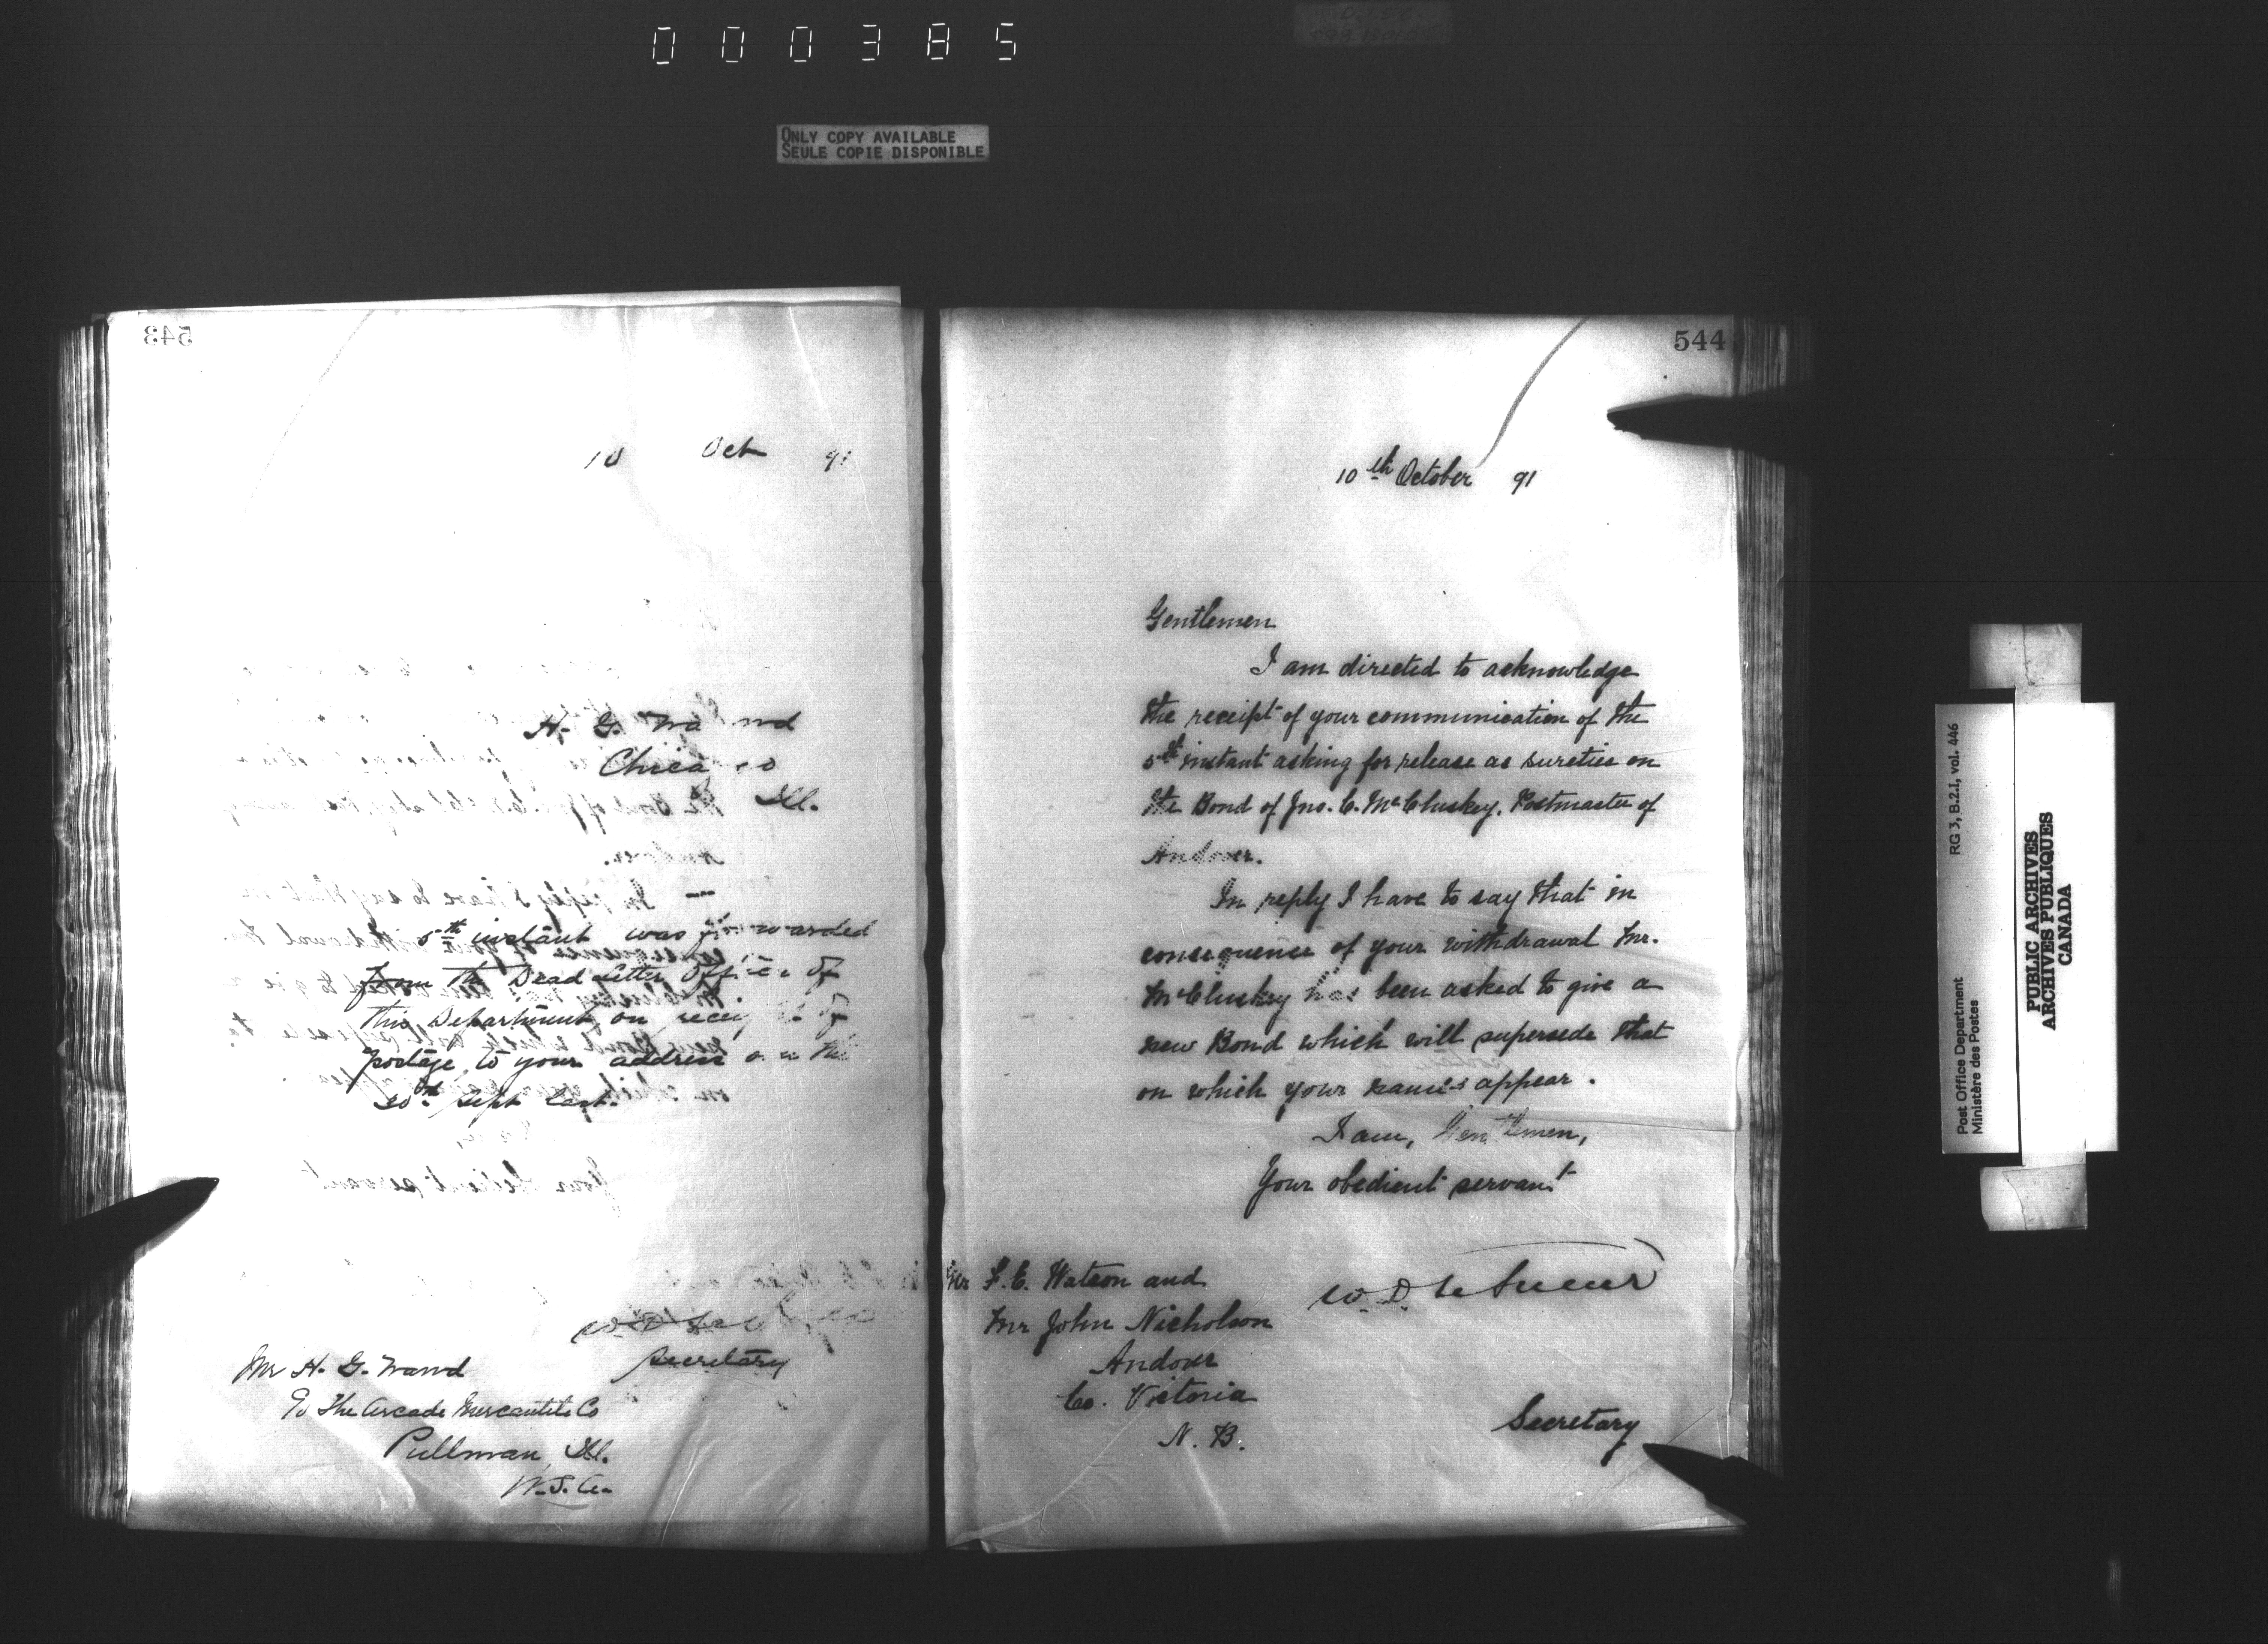 000385
ONLY COPY AVAILABLE
SEULE COPIE DISPONIBLE
543
10 Oct 91
H. G.
Chicago
Ill.
5th instant was forwarded
from the Dead Letter Office of
this Department, on receipt of
postage, to your address on the
Sept last.
Secretary
Mr H. G.
The Arcade Mercantile Co
Pullman, Ill.
U.S.A.
544
10th October 91
Gentlemen
I am directed to acknowledge
the receipt of your communication of the
5th instant asking for release as sureties on
the Bond of Jno. C. McCluskey, Postmaster of
Andover.
In reply I have to say that in
consequence of your withdrawal Mr.
McCluskey has been asked to give a
new Bond which will supersede that
on which your names appear.
I am, Gentlemen,
Your obedient servant
W. D. LeSueur
Mr F. E. Watson and
Mr John Nicholson
Andover
Co. Victoria
N. B.
Secretary
Post Office Department RG 3, B.2.I, vol. 446
Ministère des Postes
PUBLIC ARCHIVES
ARCHIVES PUBLIQUES
CANADA